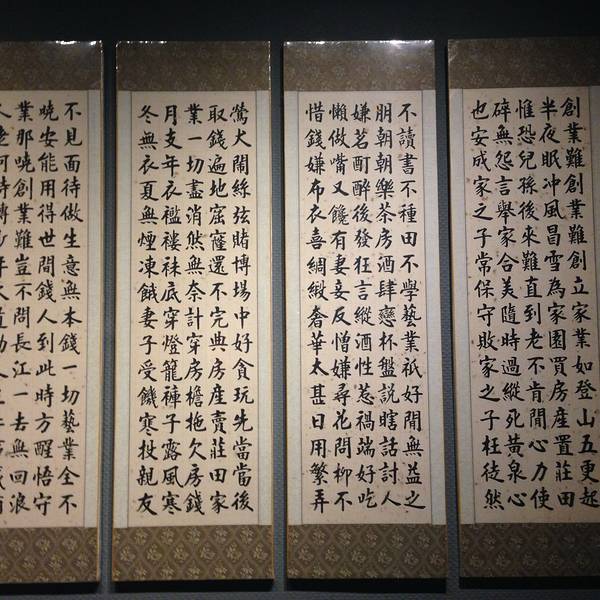 創業難創業難創立家業如登山五更起
半夜眠冲風冒雪為家園買房產置莊田
惟恐兒孫後來難直到老不肯閒心力使
碎無怨言舉家合美隨時過縱死黃泉心
也安成家之子常保守敗家之子枉徒然
不讀書不種田不學藝業祇好閒無益之
朋朝朝樂茶房酒肆戀杯盤説瞎話討人
嫌茗酊醉後發狂言縱酒性惹禍端好吃
懶做嘴又饞有妻妾反憎嫌尋花問柳不
惜錢嫌布衣喜綢緞奢華太甚日用繁弄
鶯犬鬧絲弦賭博場中好貪玩先當當後
取錢遍地窟窿還不完典房產賣莊田家
業一切盡消然無奈計穿房檐拖欠房錢
月支年衣襤褸袜底穿燈籠褲子露風寒
冬無衣夏無煙凍餓妻子受饑寒投親友
不見面待做生意無本錢一切藝業全不
曉安能用得世間錢人到此時方醒悟守
業那曉創業難豈不問長江一去無回浪